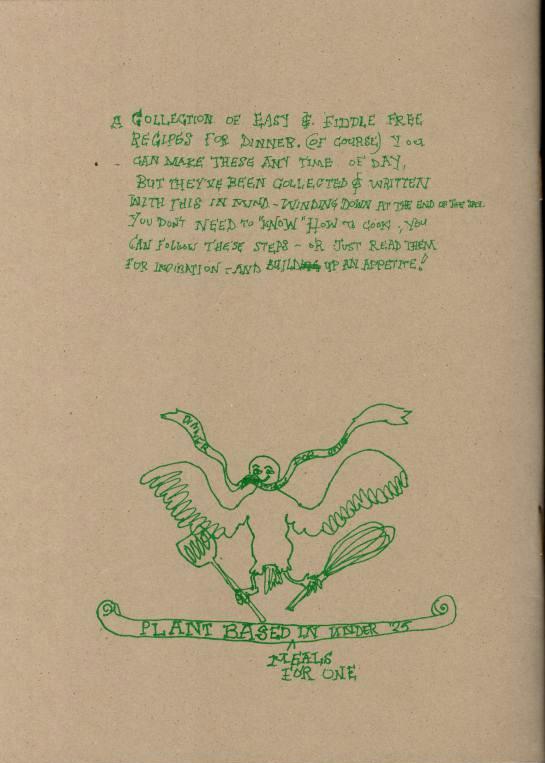 A COLLECTION OF EASY & FIDDLE FREE
RECIPES FOR DINNER. (OF COURSE) YOU
CAN MAKE THESE ANY TIME OF DAY,
BUT THEY'VE BEEN COLLECTED & WRITTEN
WITH THIS IN MIND - WINDING DOWN AT THE END OF THE DAY.
YOU DON'T NEED TO "KNOW" HOW TO COOK, YOU
CAN FOLLOW THESE STEPS - OR JUST READ THEM
FOR INSPIRATION - AND BUILD UP AN APPETITE!
DINNER
FOR
PLANT BASED IN UNDER '25
MEALS
FOR ONE